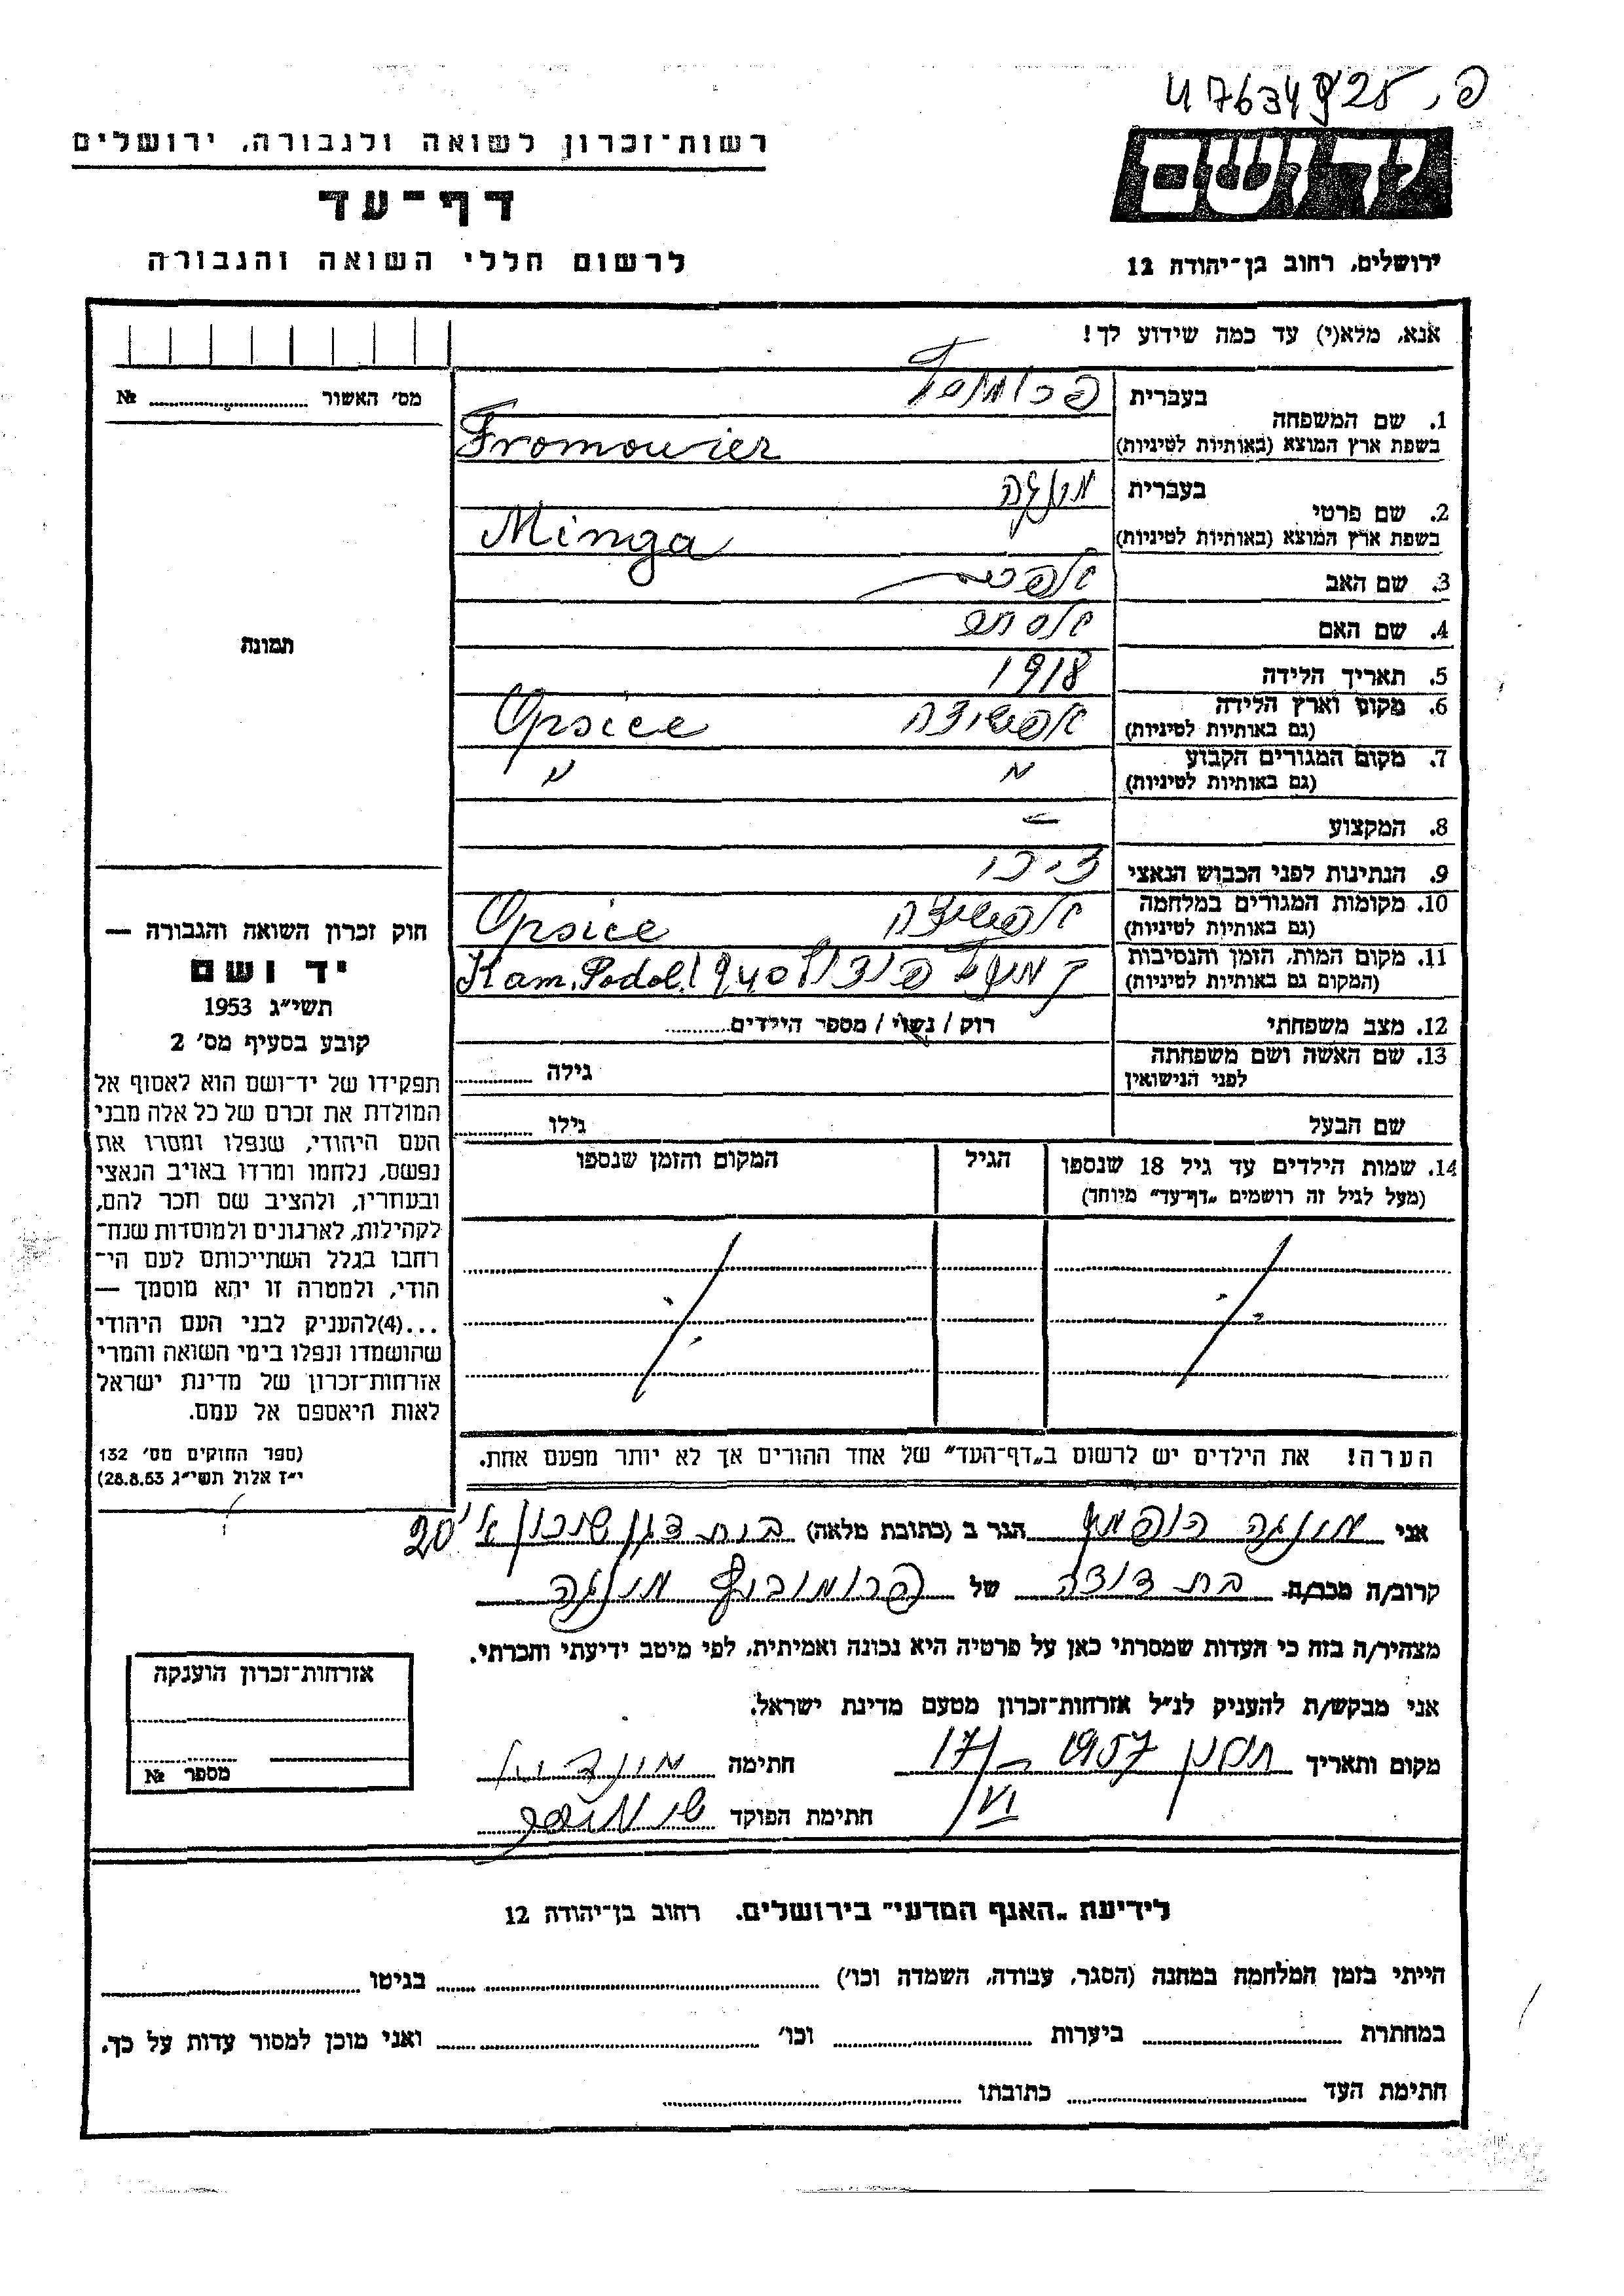 47634 925 פ,
רשות־זכרון לשואה ולגבורה, ירושלים
דף־עד
לרשום חללי השואה והגבורה
ירושלים, רחוב בן־יהודה 12
אנא, מלא(י) עד כמה שידוע לך!
מס׳ האשור № 
בעברית
1. שם המשפחה
בשפת ארץ המוצא (באותיות לטיניות) Fromowiez
בעברית מינגה
2. שם פרטי
בשפת ארץ המוצא (באותיות לטיניות) Minga
3. שם האב
4. שם האם
5. תאריך הלידה 1918
6. מקום וארץ הלידה Opsice
(גם באותיות לטיניות)
7. מקום המגורים הקבוע
(גם באותיות לטיניות)
8. המקצוע —
9. הנתינות לפני הכבוש הנאצי
10. מקומות המגורים במלחמה Opsice
(גם באותיות לטיניות)
11. מקום המות, הזמן והנסיבות Kam. Podol.
(המקום גם באותיות לטיניות)
12. מצב משפחתי רוק / נשוי / מספר הילדים
13. שם האשה ושם משפחתה גילה
לפני הנישואין
שם הבעל גילו
תמונה
חוק זכרון השואה והגבורה —
יד ושם
תשי״ג 1953
קובע בסעיף מס׳ 2
תפקידו של יד־ושם הוא לאסוף אל
המולדת את זכרם של כל אלה מבני
העם היהודי, שנפלו ומסרו את
נפשם, נלחמו ומרדו באויב הנאצי
ובעוזריו, ולהציב שם וזכר להם,
לקהילות, לארגונים ולמוסדות שנח־
רבו בגלל השתייכותם לעם הי־
הודי, ולמטרה זו יהא מוסמך —
...(4)להעניק לבני העם היהודי
שהושמדו ונפלו בימי השואה והמרי
אזרחות־זכרון של מדינת ישראל
לאות היאספם אל עמם.
(ספר החוקים מס׳ 132
י״ז אלול תשי״ג 28.8.53)
14. שמות הילדים עד גיל 18 שנספו הגיל המקום והזמן שנספו
(מעל לגיל זה רושמים „דף־עד״ מיוחד)
הערה! את הילדים יש לרשום ב„דף־העד״ של אחד ההורים אך לא יותר מפעם אחת.
אני מינגה הופמן הגר ב (כתובת מלאה) בית דגן שיכון א׳ 20
קרוב/ה מכר/ה בת דודה של פרומוביץ מינגה
מצהיר/ה בזה כי העדות שמסרתי כאן על פרטיה היא נכונה ואמיתית, לפי מיטב ידיעתי והכרתי.
אני מבקש/ת להעניק לנ״ל אזרחות־זכרון מטעם מדינת ישראל.
מקום ותאריך 17/VI 1957 חתימה
חתימת הפוקד
אזרחות־זכרון הוענקה
מספר №
לידיעת „האגף המדעי״ בירושלים, רחוב בן־יהודה 12
הייתי בזמן המלחמה במחנה (הסגר, עבודה, השמדה וכו׳) בגיטו
במחתרת ביערות וכו׳ ואני מוכן למסור עדות על כך.
חתימת העד כתובתו